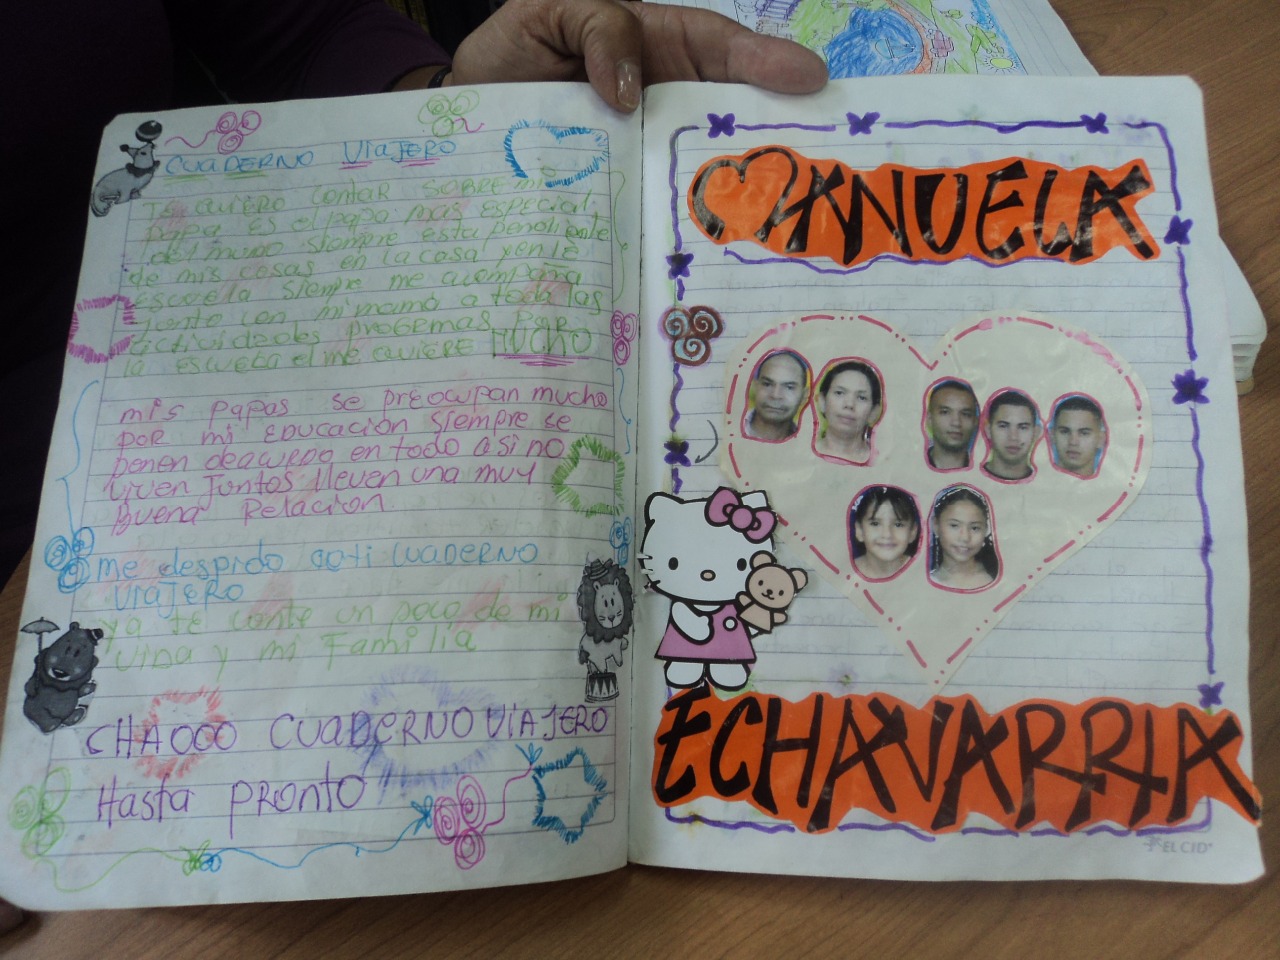 CUADERNO VIAJERO
Te quiero contar sobre mi
papa es el papa mas especial
del muno siempre esta pendiente
de mis cosas en la casa yen la
escuela siempre me acompaña
junto con mi mamá a todas las
actividades progemas para
la escuela el me quiere MUCHO
mis papas se preocupan mucho
por mi Educación siempre se
ponen deacuerdo en todo asi no
viven juntos lleven una muy
Buena Relacion.
me despido de ti cuaderno
viajero
ya te conte un poco de mi
vida y mi Familia
CHAOOO CUADERNO VIAJERO
Hasta pronto
MANUELA
ECHAVARRIA
EL CID